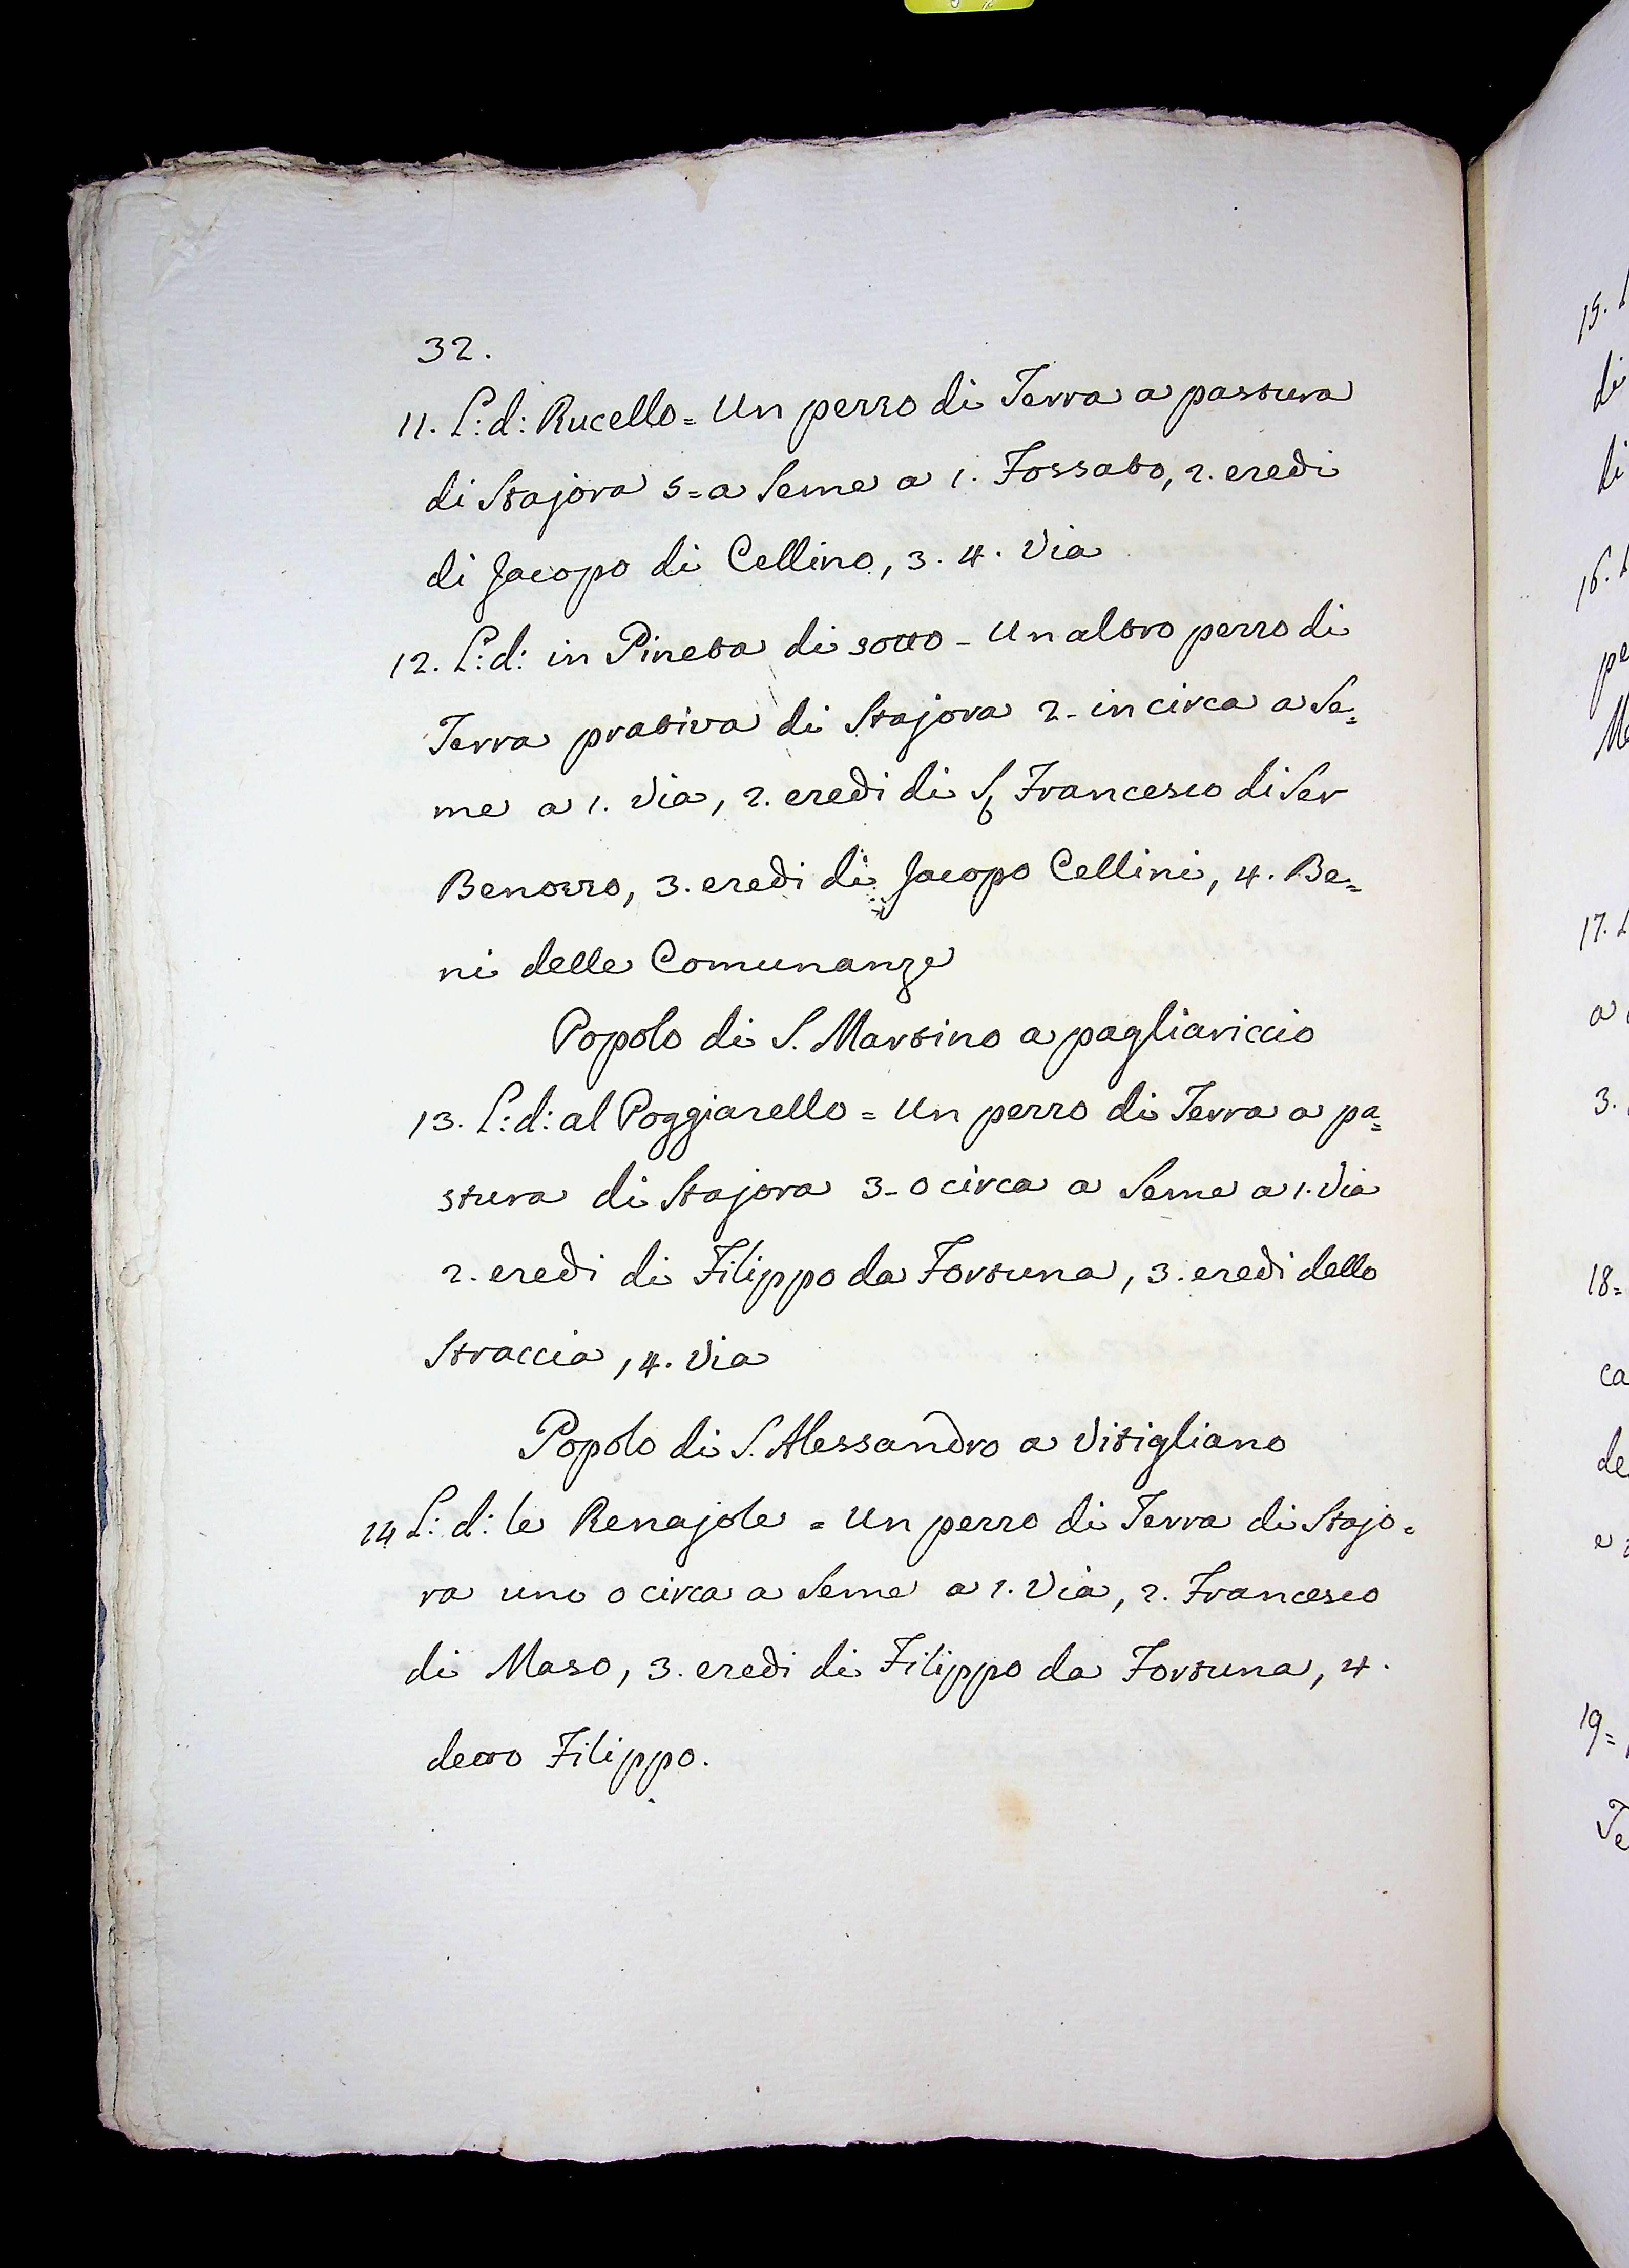 32.
11. L: d: Rucello = Un pezzo di Terra a pastura
di Stajora 5 = a Seme a 1. Fossato, 2. eredi
di Jacopo di Cellino, 3. 4. Via
12. L: d: in Pineta di sotto - Un altro pezzo di
Terra prativa di Stajora 2 - in circa a Se=
me a 1. Via, 2. eredi di Francesco di Ser
Benozzo, 3. eredi di Jacopo Cellini, 4. Be=
ni delle Comunanze
Popolo di S. Martino a pagliariccio
13. L: d: al Poggiarello = Un pezzo di Terra a pa=
stura di Stajora 3 - o circa a Seme a 1. Via
2. eredi di Filippo da Fortuna, 3. eredi dello
Straccia, 4. Via
Popolo di S. Alessandro a Vitigliano
14 L: d: le Renajole = Un pezzo di Terra di Stajo=
ra uno o circa a Seme a 1. Via, 2. Francesco
di Maso, 3. eredi di Filippo da Fortuna, 4.
detto Filippo.
15.
di
di
16.
pe
17.
a
3.
18=
ca
de
e
19=
Te